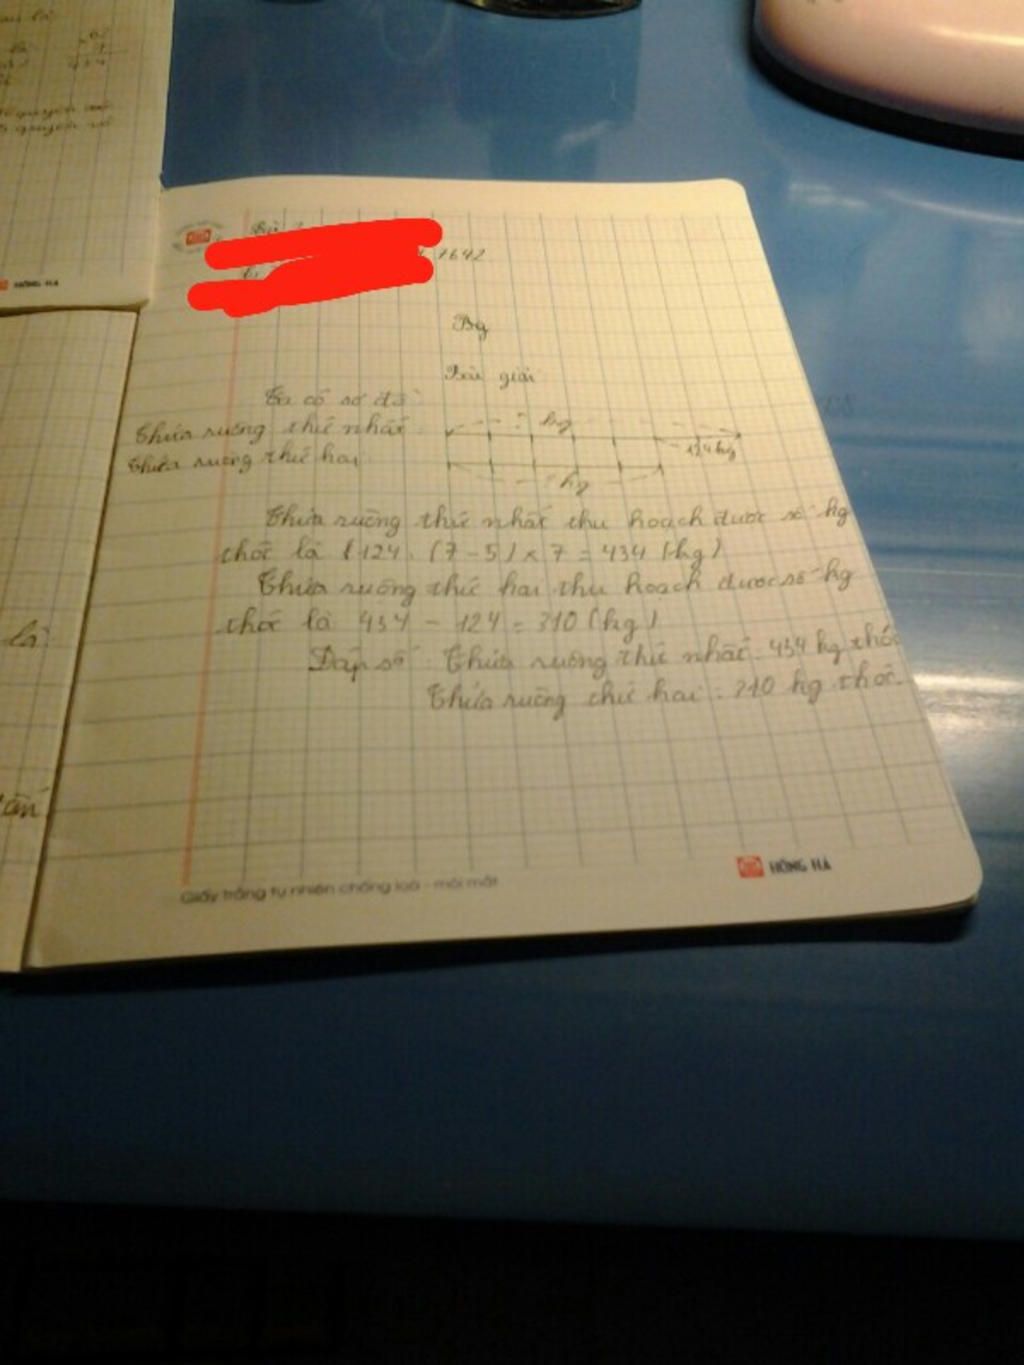 HỒNG HÀ
1642
Bg
Bài giải
Ta có sơ đồ
Thửa ruộng thứ nhất : ? kg
124 kg
Thửa ruộng thứ hai : ? kg
Thửa ruộng thứ nhất thu hoạch được số kg
thóc là : 124 : (7 - 5) x 7 = 434 (kg)
Thửa ruộng thứ hai thu hoạch được số kg
thóc là 434 - 124 = 310 (kg)
Đáp số : Thửa ruộng thứ nhất : 434 kg thóc
Thửa ruộng thứ hai : 310 kg thóc.
là:
HỒNG HÀ
Giấy trắng tự nhiên chống loá - mỏi mắt